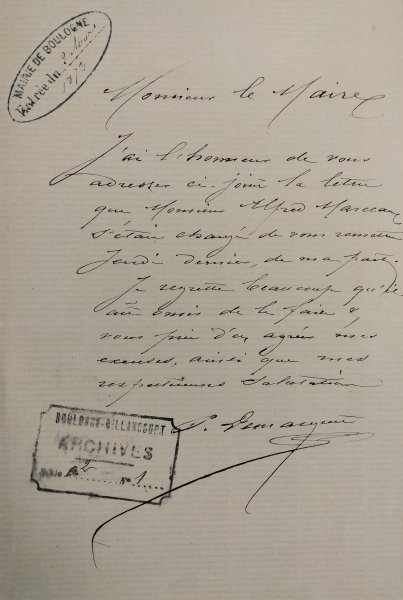 MAIRIE DE BOULOGNE
Entrée du
Monsieur le Maire
J'ai l'honneur de vous
adresser ci-joint la lettre
que Monsieur Alfred Marceau
s'était chargé de vous remettre
Jeudi dernier, de ma part.
Je regrette beaucoup qu'il
ait omis de le faire &
vous prie d'en agréer mes
excuses, ainsi que mes
respectueuses salutations
BOULOGNE-BILLANCOURT
ARCHIVES
2 N° 1